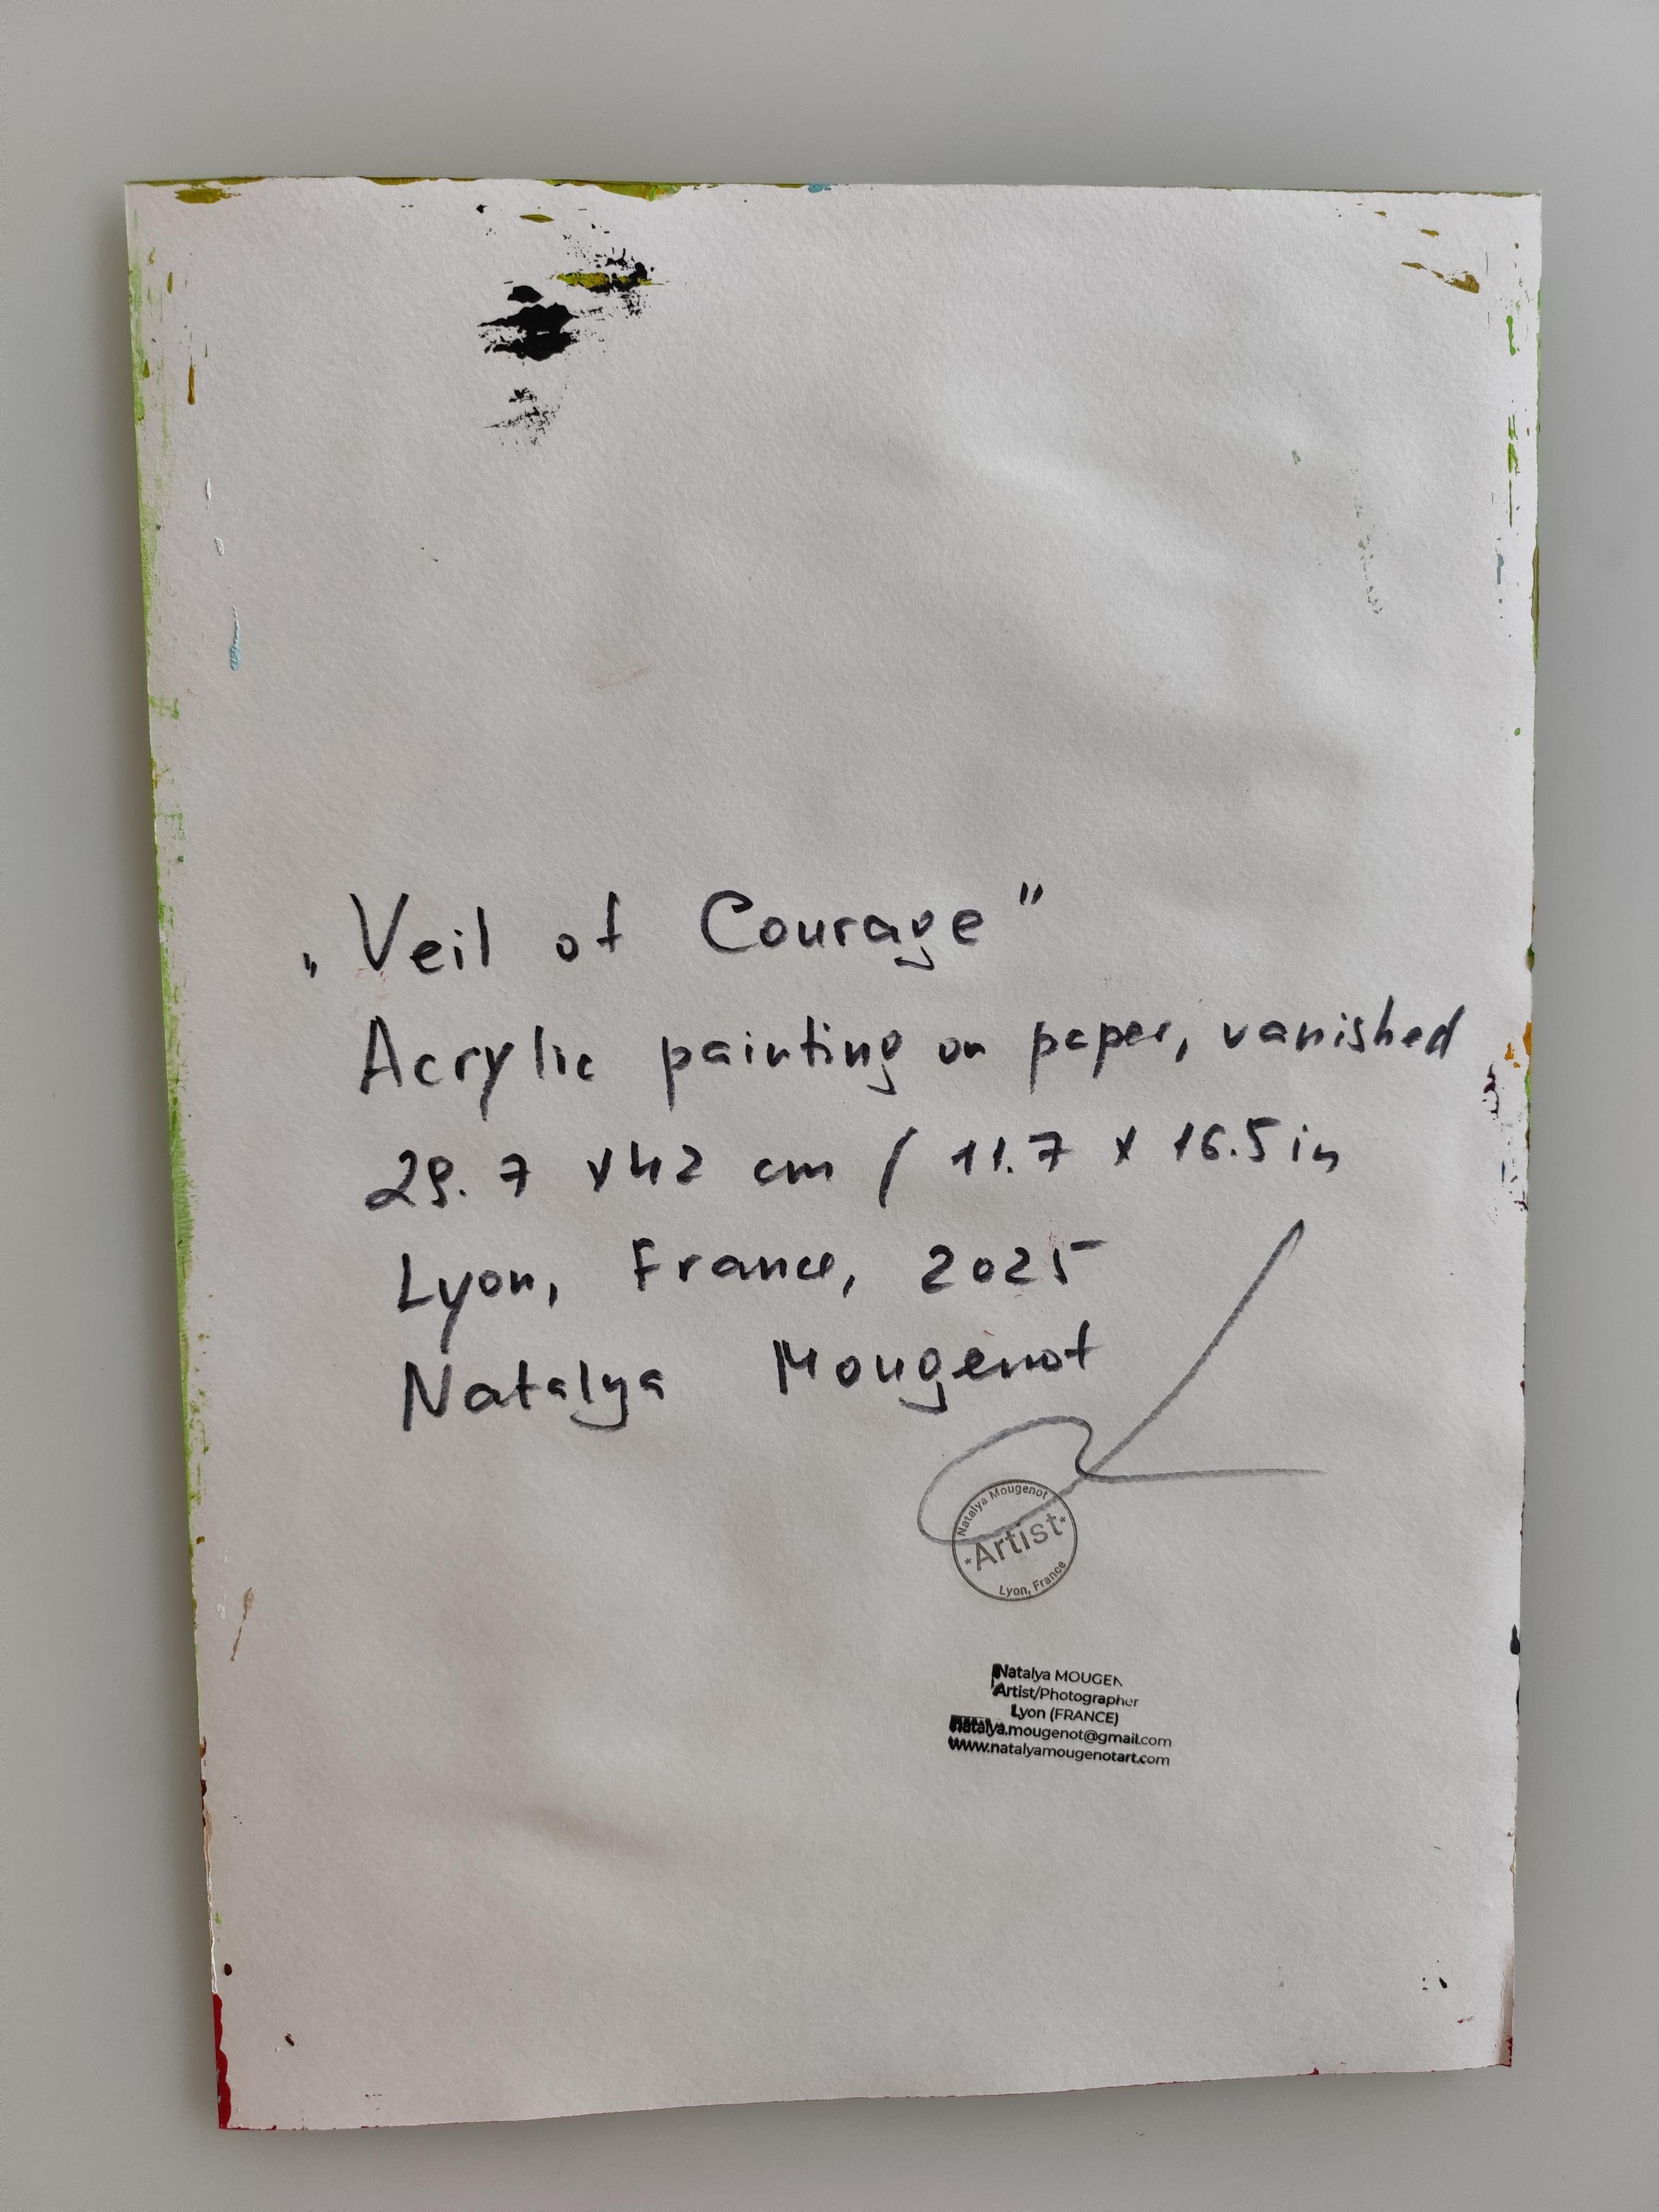 „Veil of Courage"
Acrylic painting on paper, vanished
29.7 x 42 cm / 11.7 x 16.5 in
Lyon, France, 2025
Natalya Mougenot
Natalya Mougenot
*Artist*
Lyon, France
Natalya MOUGEN
Artist/Photographer
Lyon (FRANCE)
natalya.mougenot@gmail.com
www.natalyamougenotart.com